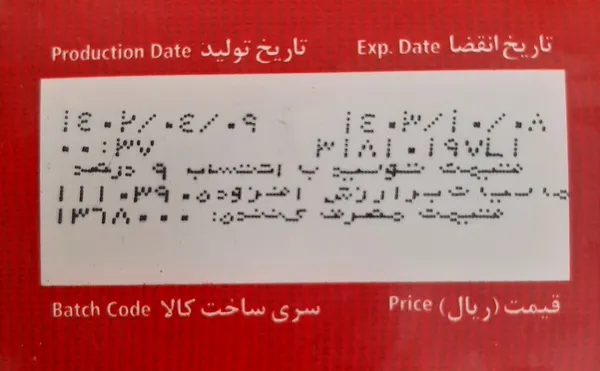 Production Date تاریخ تولید
Exp. Date تاریخ انقضا
۱۴۰۲/۰۴/۰۹
۱۴۰۳/۱۰/۰۸
۰۰:۳۷
۳۱۸۱۰۱۹۷L۱
قیمت تولید با احتساب ۹ درصد
مالیات بر ارزش افزوده:۱۱۱۰۳۹۰
قیمت مصرف کننده: ۱۳۶۸۰۰۰
Batch Code سری ساخت کالا
Price قیمت (ریال)